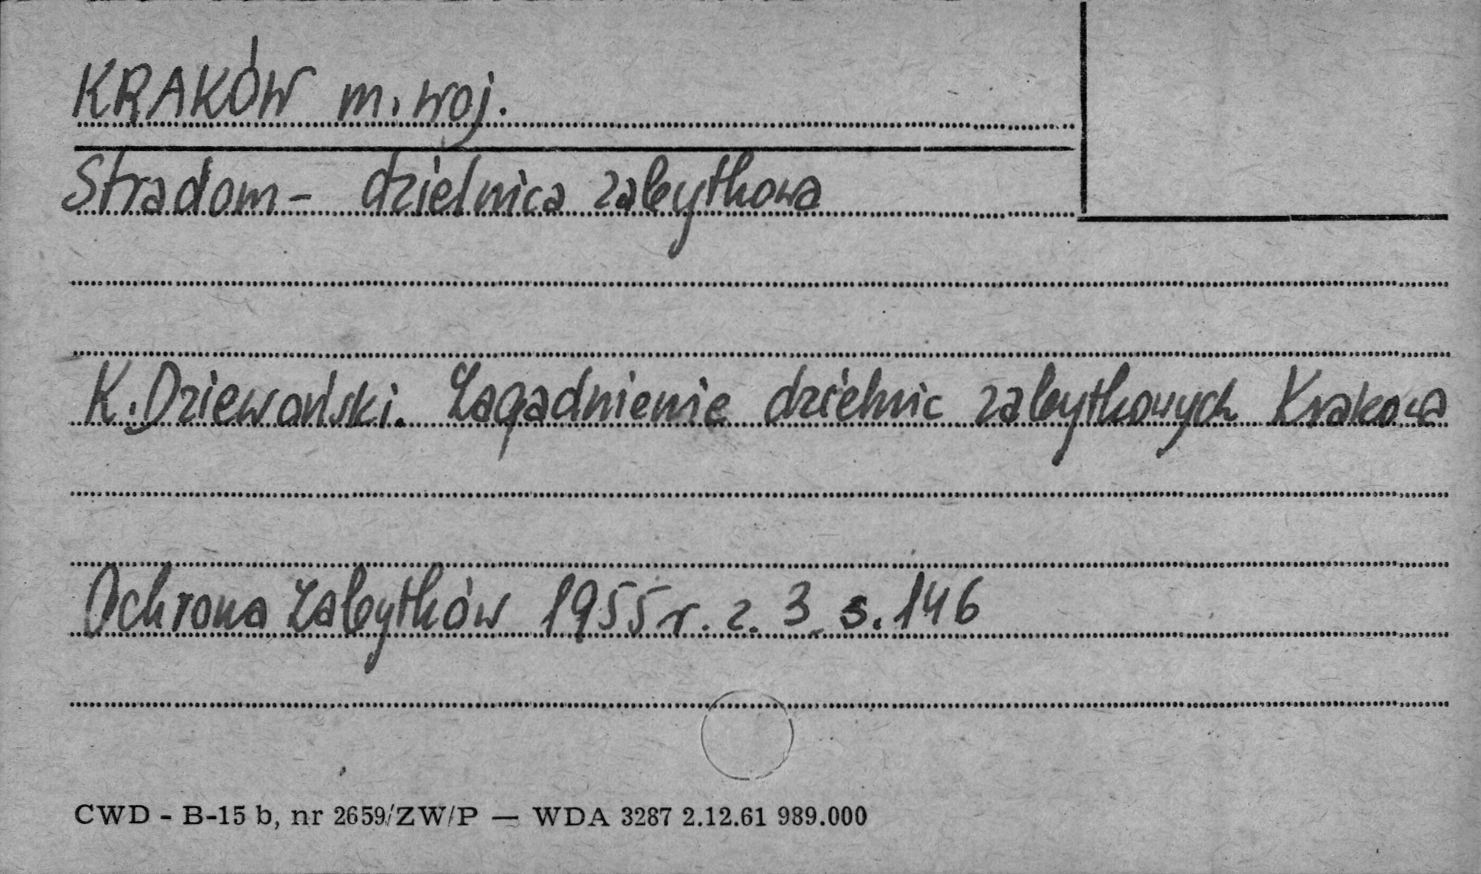 KRAKÓW m. woj.
Stradom - dzielnica zabytkowa
K. Dziewoński. Zagadnienie dzielnic zabytkowych Krakowa
Ochrona Zabytków 1955 r. z. 3 s. 146
CWD - B-15 b, nr 2659/ZW/P — WDA 3287 2.12.61 989.000